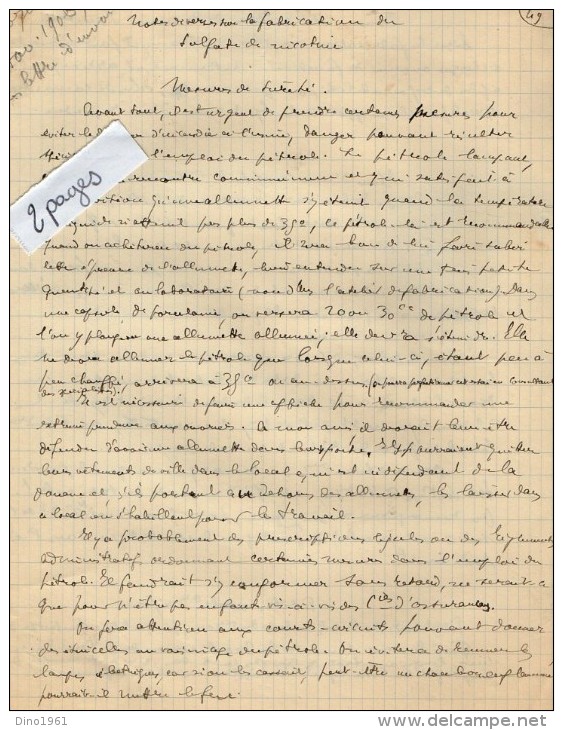 49
Notes diverses sur la fabrication du
Sulfate de nicotine
Mesures de Sûreté.
Avant tout, il est urgent de prendre certaines mesures pour
éviter le d'incendie à l'usine, danger pouvant résulter
l'emploi du pétrole. Le pétrole lampant,
rencontre communément et qui satisfait à
qu'une allumette s'y éteint quand la température
pas plus de 35°, ce pétrole là est recommandable
quand on achètera du pétrole, il sera bon de lui faire subir
cette épreuve de l'allumette, bien entendu sur une très petite
quantité et au laboratoire (non dans les ateliers de fabrication). Dans
une capsule de porcelaine, on versera 20 ou 30cc de pétrole et
l'on y plongera une allumette allumée; elle devra s'éteindre. Elle
ne devra allumer le pétrole que lorsque celui-ci, étant peu à
peu chauffé, arrivera à 35° ou au-dessus
Il est nécessaire de faire une affiche pour recommander une
extrême prudence aux ouvriers. A mon avis il devrait leur être
défendu d'avoir une allumette dans leur poche. Ils pourraient quitter
leurs vêtements de ville dans le local qui est indépendant de la
et, s'ils portent au dehors des allumettes, les laisser dans
ce local où s'habillent pour le travail.
Il y a probablement des prescriptions légales ou des Règlements
administratifs ordonnant certaines mesures dans l'emploi du
pétrole. Il faudrait s'y conformer sans retard, ne serait-ce
que pour n'être pas en faute vis-à-vis des Cies d'assurances.
On fera attention aux courts-circuits pouvant donner
des étincelles au voisinage du pétrole. On évitera de remuer les
lampes électriques, car si on les cassait, peut-être un charbon enflammé
pourrait-il mettre le feu.
2 pages
Dino1961
delcampe.net